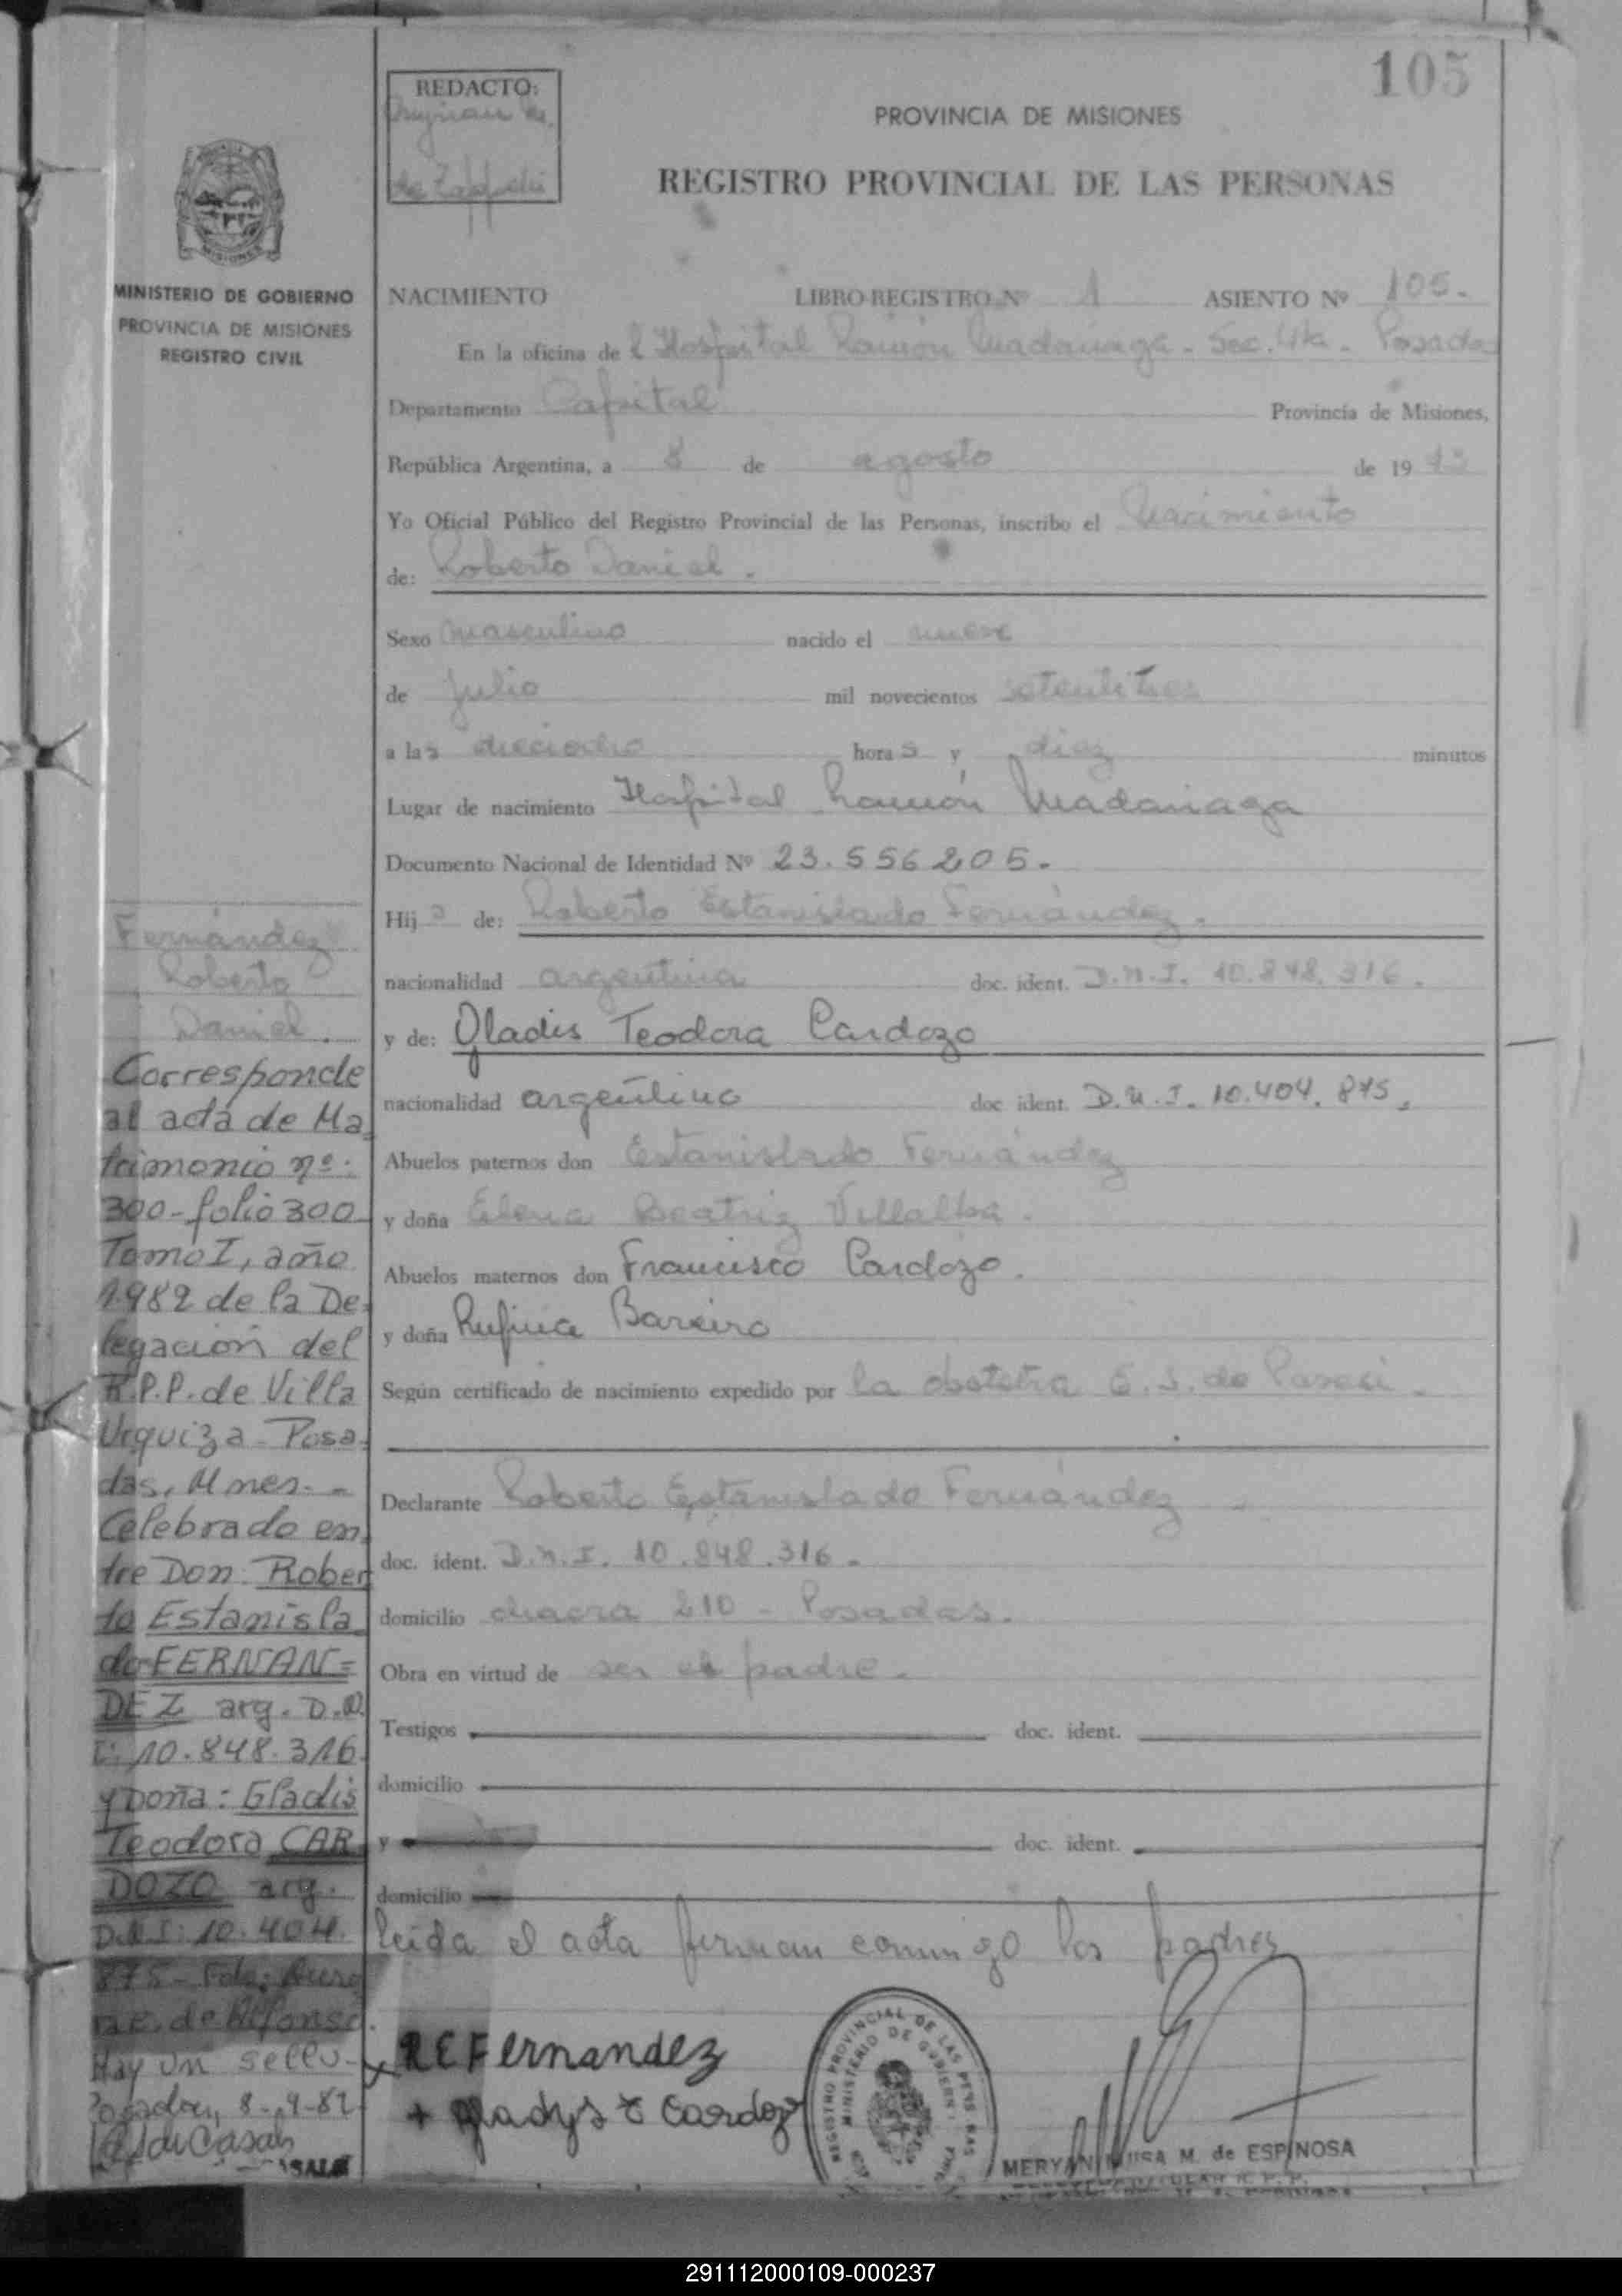 105
REDACTO:
de
PROVINCIA DE MISIONES
REGISTRO PROVINCIAL DE LAS PERSONAS
MISIONES
MINISTERIO DE GOBIERNO
PROVINCIA DE MISIONES
REGISTRO CIVIL
NACIMIENTO LIBRO REGISTRO Nº 1 ASIENTO Nº 105.
En la oficina de l Hospital Ramón Madariaga - Sec. 4ta - Posadas
Departamento Capital Provincia de Misiones,
República Argentina, a 8 de agosto de 19 73
Yo Oficial Público del Registro Provincial de las Personas, inscribo el Nacimiento
de: Roberto Daniel.
Sexo masculino nacido el nueve
de julio mil novecientos setentitres
a las dieciocho horas y diez minutos
Lugar de nacimiento Hospital Ramón Madariaga
Documento Nacional de Identidad Nº 23.556205.
Hijo de: Roberto Estanislado Fernández.
nacionalidad argentina doc. ident. D.N.I. 10.848.316.
y de: Gladis Teodora Cardozo
nacionalidad argentina doc ident. D.N.I. 10.404.875.
Abuelos paternos don Estanislado Fernández
y doña Elena Beatriz Villalba.
Abuelos maternos don Francisco Cardozo.
y doña Rufina Bareiro
Según certificado de nacimiento expedido por la obstetra E. S. de
Declarante Roberto Estanislado Fernández
doc. ident. D.N.I. 10.848.316.
domicilio chacra 210 - Posadas.
Obra en virtud de ser el padre.
Testigos doc. ident.
domicilio
y doc. ident.
domicilio
leída el acta firman conmigo los padres
Fernández
Roberto
Daniel.
Corresponde
al acta de Ma
trimonio nº:
300-folio 300
Tomo I, año
1.982 de la De-
legación del
R.P.P. de Villa
Urquiza - Posa-
das, Mnes. -
Celebrado en-
tre Don: Rober
to Estanisla
do FERNAN=
DEZ arg. D.N.
I: 10.848.316.
y Doña: Gladis
Teodora CAR
DOZO arg.
D.N.I: 10.404.
875 - Fdo:
de Alfonso.
Hay un sello-
Posadas, 8-9-82
RE Fernandez
+ gladys t cardozo
REGISTRO PROVINCIAL DE LAS PERSONAS
MINISTERIO DE GOBIERNO
MERYAN LUISA M. de ESPINOSA
291112000109-000237